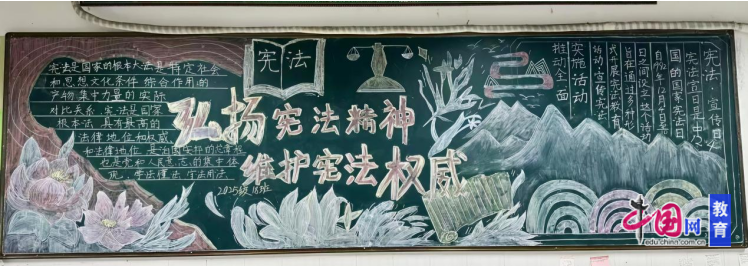 宪法是国家的根本大法是特定社会
和思想文化条件综合作用的
产物集中力量的实际
对比关系，宪法是国家
根本法，具有最高的
法律地位和权威
和法律地位，是治国安邦的总章程
也是党和人民意志的集中体
现，学法懂法守法用法。
宪法
弘扬宪法精神
维护宪法权威
2025级18班
宪法·宣传日
宪法宣日是中
国的国家宪法日
自 年12月4日
日之间设立这个活动
旨在通过多种形
式开展宪法教育
活动，宣传宪法
实施活动
推动全面
中国网
教育
edu.china.com.cn